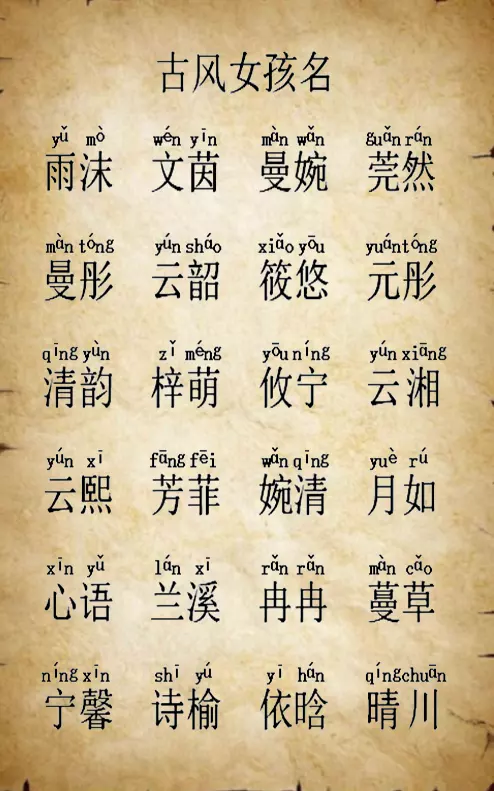 古风女孩名
yǔ mò wén yīn màn wǎn guǎn rán
雨沫 文茵 曼婉 莞然
màn tóng yún sháo xiǎo yōu yuán tóng
曼彤 云韶 筱悠 元彤
qīng yùn zǐ méng yōu níng yún xiāng
清韵 梓萌 攸宁 云湘
yún xī fāng fēi wǎn qīng yuè rú
云熙 芳菲 婉清 月如
xīn yǔ lán xī rǎn rǎn màn cǎo
心语 兰溪 冉冉 蔓草
níng xīn shī yú yī hán qíng chuān
宁馨 诗榆 依晗 晴川